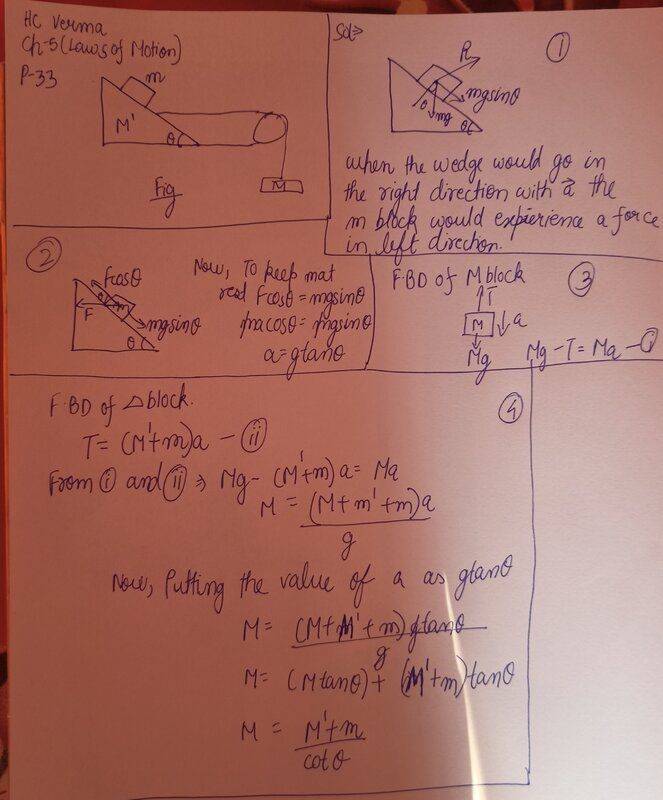 HC Verma
Ch-5 (Laws of Motion)
P-33
m
M'
θ
M
Fig
Sol⇒
①
R
mgsinθ
θ
mg
θ
when the wedge would go in
the right direction with a⃗ the
m block would expierience a force
in left direction.
②
Fcosθ
θ
F
m
mgsinθ
θ
Now, To keep m at
rest Fcosθ = mgsinθ
macosθ = mgsinθ
a = gtanθ
③
F·BD of M block
T
M
a
Mg
Mg - T = Ma - ⓘ
④
F·BD of △ block.
T = (M'+m)a - ⓘⓘ
From ⓘ and ⓘⓘ ⇒ Mg - (M'+m)a = Ma
M = (M + m' + m)a
g
Now, Putting the value of a as gtanθ
M = (M + M' + m) gtanθ
g
M = (Mtanθ) + (M'+m)tanθ
M = M'+m
cotθ